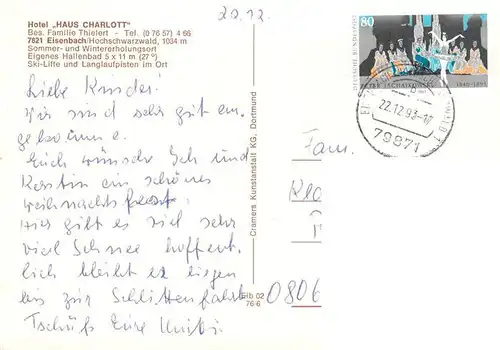 Hotel „HAUS CHARLOTT"
Bes. Familie Thielert - Tel. (0 76 57) 4 66
7821 Eisenbach/Hochschwarzwald, 1034 m
Sommer- und Wintererholungsort
Eigenes Hallenbad 5 x 11 m (27°)
Ski-Lifte und Langlaufpisten im Ort
20.12.
80
DEUTSCHE BUNDESPOST
PETER TSCHAIKOWSKY 1840-1893
22.12.93-17
79871
Liebe Kinder!
Wir sind sehr gut an-
gekommen.
Euch wünsche Ich und
Kerstin ein schönes
Weihnachtsfest.
Hier gibt es viel sehr
viel Schnee hoffent-
lich bleibt er liegen
bis zur Schlittenfahrt
Tschüß Eure
Cramers Kunstanstalt KG, Dortmund
Eib 02
76 6
Fam.
0806